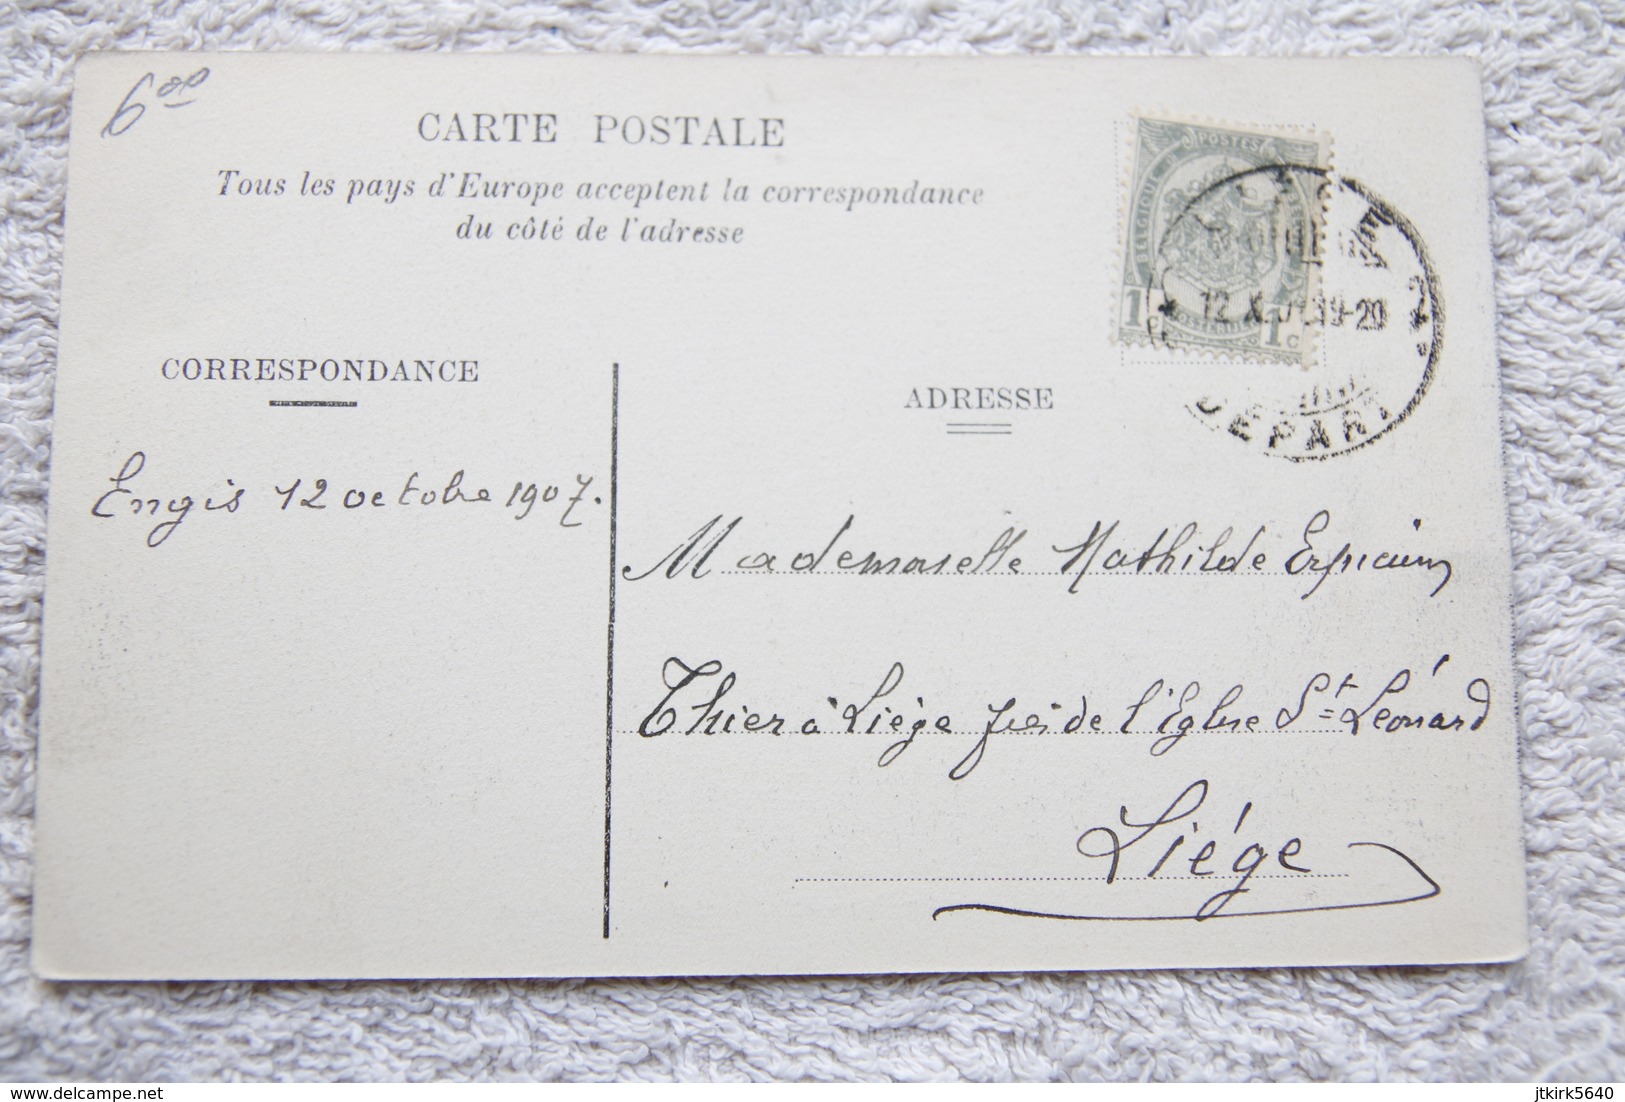 6 00
CARTE POSTALE
Tous les pays d'Europe acceptent la correspondance
du côté de l'adresse
POSTES
BELGIQUE
POSTERIJEN
1c 1c
12 X 19-20
DEPART
CORRESPONDANCE
ADRESSE
Engis 12 octobre 1907.
Mademoiselle Mathilde
Thier à Liège près de l'Eglise St Léonard
Liége
delcampe.net
jtkirk5640